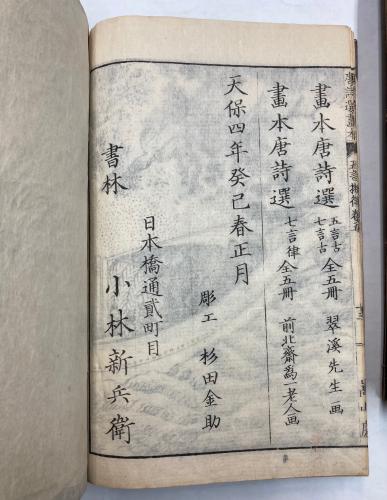 畫本唐詩選 五言古 七言古 全五冊 翠溪先生画
畫本唐詩選 七言律 全五冊 前北齋爲一老人画
彫工 杉田金助
天保四年癸巳春正月
日本橋通貳町目
書林 小林新兵衛